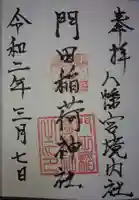 奉拝 八幡宮境内社
門田稲荷神社
令和二年三月七日